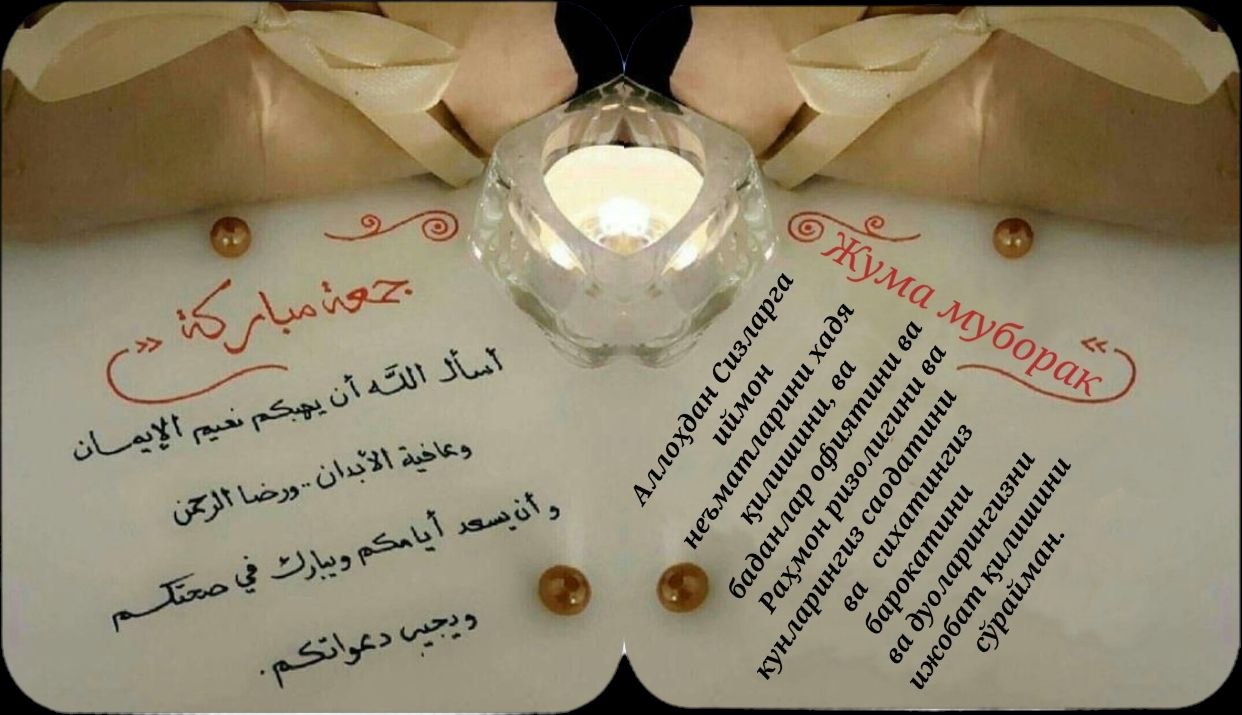 جمعة مباركة
أسأل الله أن يهبكم نعيم الإيمان
وعافية الأبدان .. ورضا الرحمن
وأن يسعد أيامكم ويبارك في صحتكم
ويجيب دعواتكم.
Жума муборак
Аллоҳдан Сизларга
иймон
неъматларини хадя
қилишини, ва
баданлар офиятини ва
Раҳмон ризолигини ва
кунларингиз саодатини
ва сихатингиз
барокатини
ва дуоларингизни
ижобат қилишини
сўрайман.